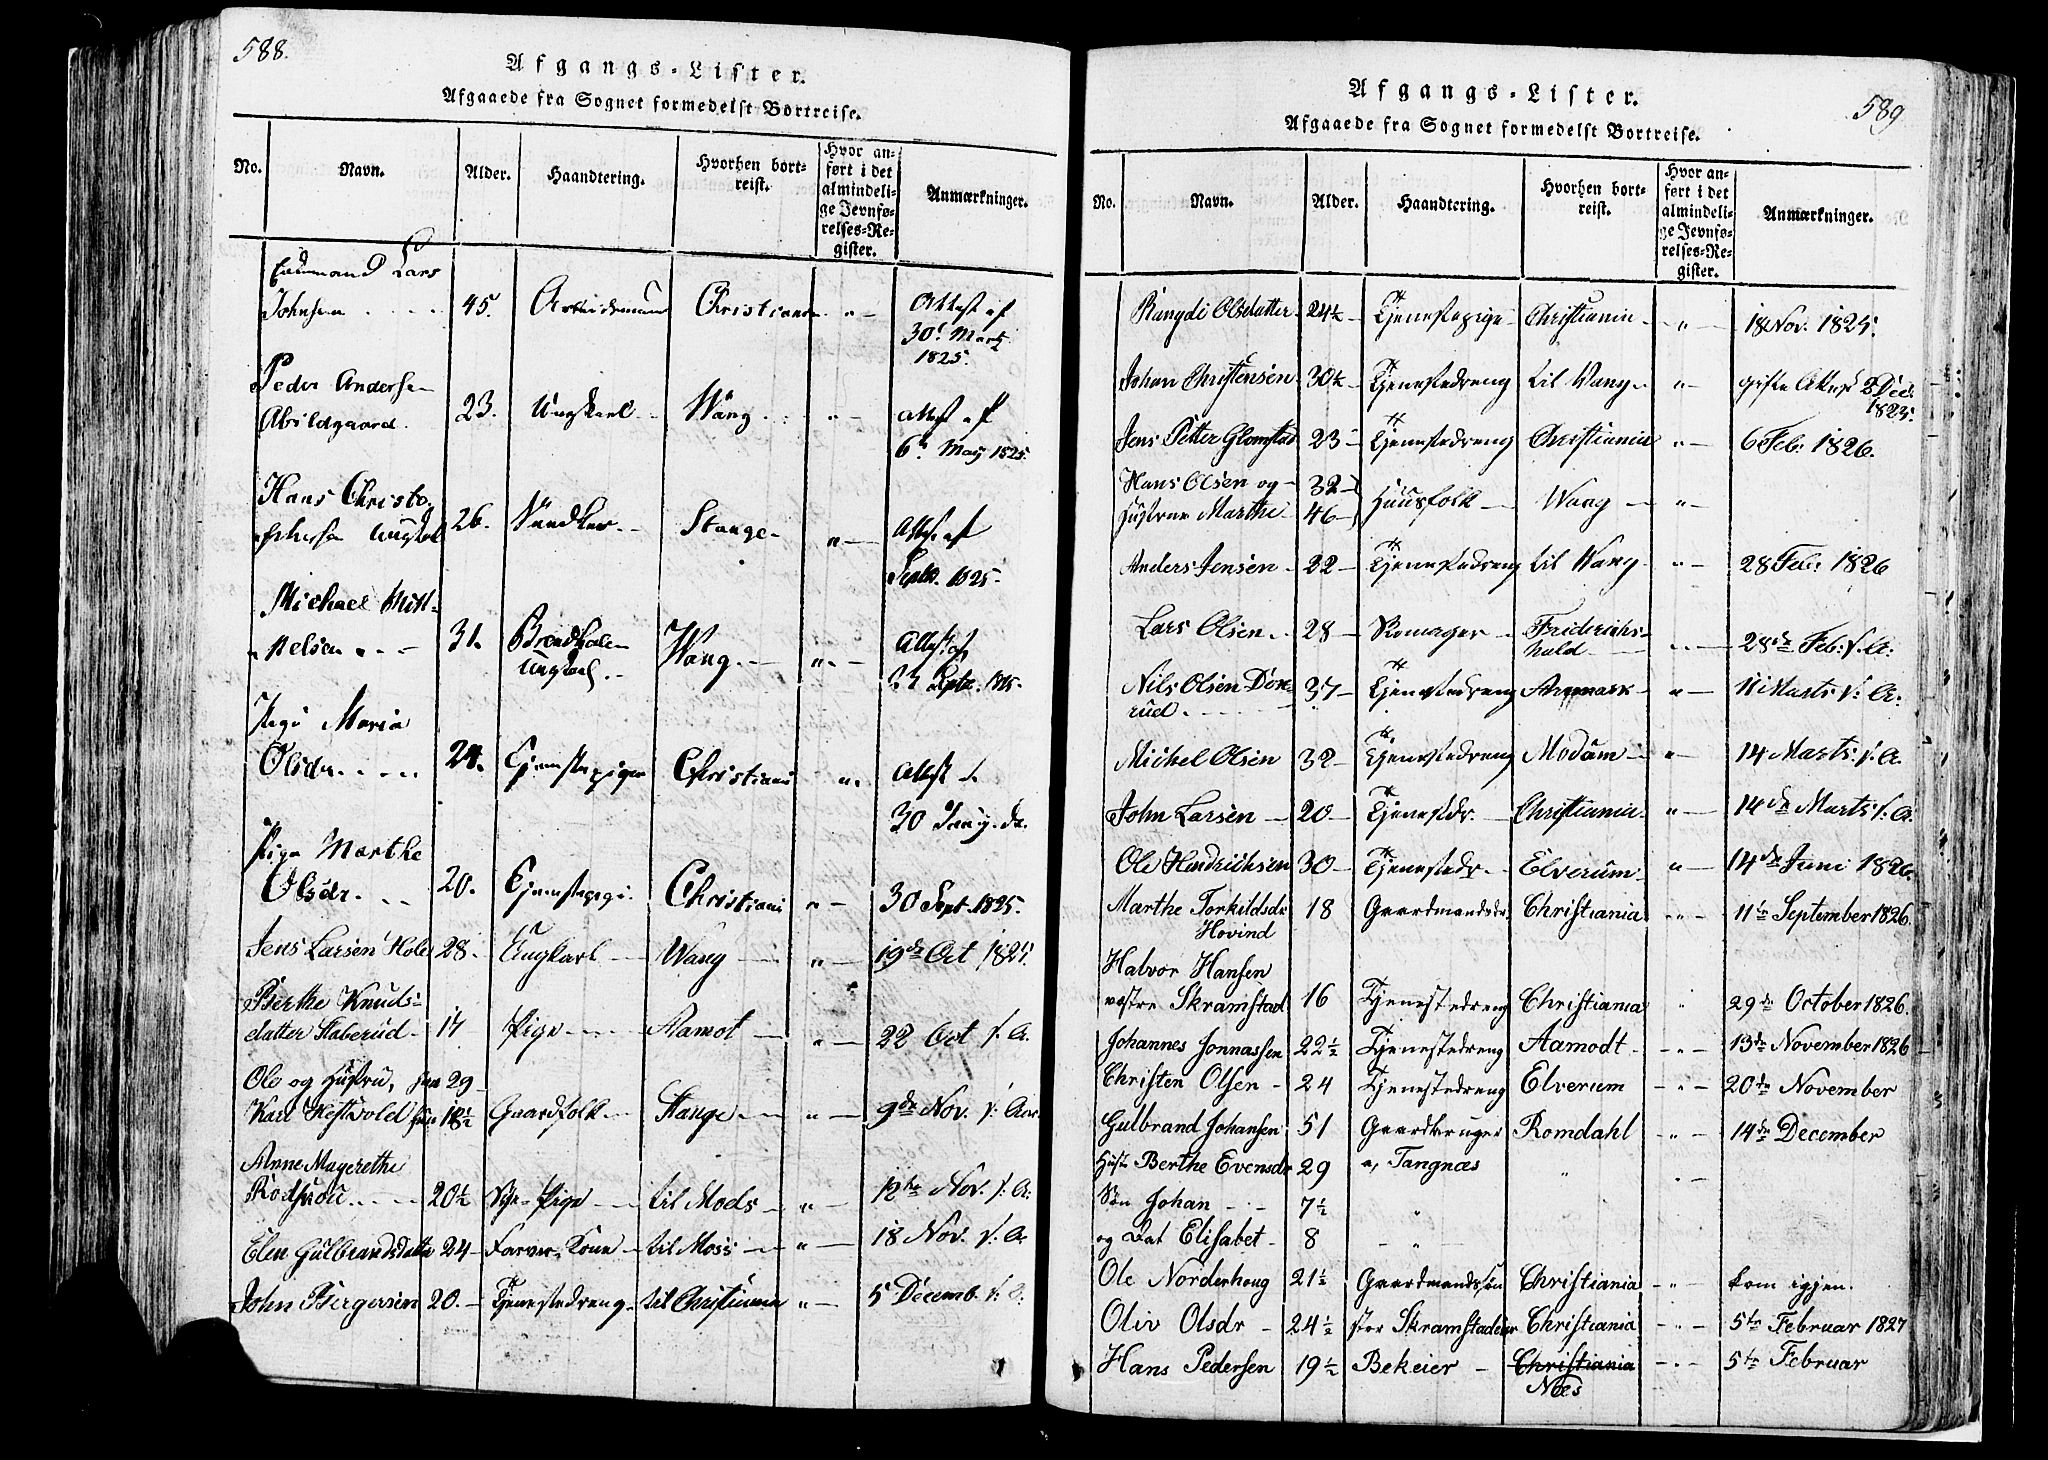 588.
Afgangs-Lister.
Afgaaede fra Sognet formedelst Bortreise.
No. Navn. Alder. Haandtering. Hvorhen bortreist. Hvor anført i det almindelige Jevnførelses-Register. Anmærkninger.
Lars
Johnsen 45. Arbeidsmand Christiania " Attest af
30t Marts
1825.
Peder Andersen
Abildgaard. 23. Ungkarl Wang " attest af
6te May 1825.
Hans Christo-
phersen Ungkl 26. Stange " Attest af
Septbr. 1825.
Michael Mik-
kelsen 31. Ungkarl. Wang. " Attest af
23 Septbr. 1825.
Pige Maria
Olsdr. 24. Tjenestepige Christiania " Attest
30
Pige Marthe
Olsdr. 20. Tjenestepige. Christiania " 30 Sept. 1825.
Jens Larsen Hole 28. Ungkarl Wang " 19de Oct 1825.
Berthe Knuds-
datter Staberud 17 Pige Aamot " 22 Oct s. A.
Ole og Hustru, han 29
Kari Heftvold hun 18½ Gaardfolk Stange " 9de Nov. s: Aar
Anne Magrethe
20½ Pige til Mods " 12te Nov. s: A:
Elen Gulbrandsdatter 24 Farver-Kone til Moss " 18 Nov. s: A.
John Birgersen 20. Tjenestedreng til Christiania " 5 Decemb. s: A:
589
Afgangs-Lister.
Afgaaede fra Sognet formedelst Bortreise.
No. Navn. Alder. Haandtering. Hvorhen bortreist. Hvor anført i det almindelige Jevnførelses-Register. Anmærkninger.
Rangdi Olsdatter 24½ Tjenestepige Christiania " 18 Nov. 1825.
Johan Christensen 30½ Tjenestedreng til Wang " gifte Attest 2 Dec:
1825.
Jens Petter Glomstad 23 Tjenestedreng Christiania " 6 Feb: 1826.
Hans Olsen og 32
Hustrue Marthe 46 Huusfolk Wang "
Anders Jensen 22 Tjenestedreng til Wang " 28 Feb: 1826
Lars Olsen 28 Skomager Friderichs-
hald " 28de Feb: s: A:
Nils Olsen Dør-
rud. 37 Tjenestedreng Aremark " 11 Marts s: A:
Michel Olsen 32 Tjenestedreng Modum " 14 Marts s: A.
John Larsen 20 Tjenestdr. Christiania " 14de Marts s: A.
Ole Hendrichsen 30 Tjenestedr Elverum " 14de Juni 1826.
Marthe Torkildsdr
Hovind 18 Gaardmandsdr Christiania " 11te September 1826.
Halvor Hansen
vestre Skramstad 16 Tjenestedreng Christiania " 29de October 1826.
Johannes Jonnassen 22½ Tjenestedreng Aamodt " 13de November 1826
Christen Olsen 24 Tjenestedreng Elverum " 20de November
Gulbrand Johansen 51 Gaardbruger Romdahl " 14de December
Hust Berthe Evensdr 29 a, Tangnæs " "
Søn Johan 7½ "
og Dat Elisabet 8 "
Ole Norderhoug 21½ Gaardmandssøn Christiania " kom igjen.
Oliv Olsdr 24½ stor Skramstadeier Christiania " 5te Februar 1827
Hans Pedersen 19½ Bekeier Christiania " 5te Februar
Næs